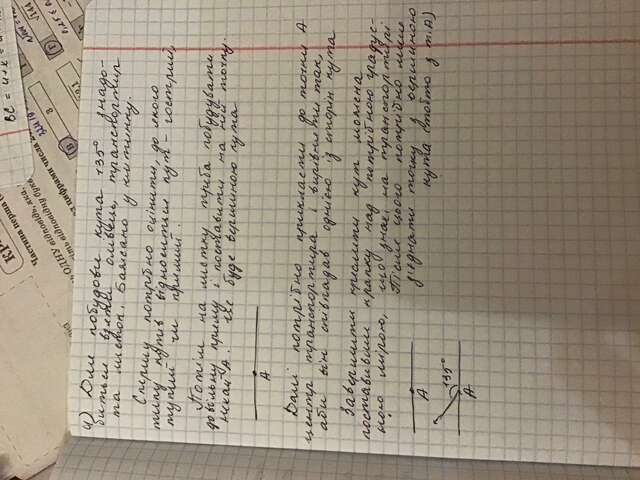 4) Для побудови кута 135° знадо-
биться взяти олівець, транспортир
та листок. Бажано у клітинку.
Спершу потрібно оцінити, до якого
типу кутів відноситься кут - гострий,
тупий чи прямий.
Потім на листку треба побудувати
довільну пряму і поставити на ній точку.
Нехай A. Це буде вершиною кута
A
Далі потрібно прикласти до точки A
центр транспортира і вирівняти так,
аби він співпадав однією із сторін кута
Завершити креслити кут можна
поставивши крапку над потрібною градус-
ною мірою, що знає на транспортирі
Після цього потрібно лише
з'єднати точку з вершиною
кута (тобто з т. A)
A
135°
A
BC =
Частина перша
ОДНУ відповідь
цифрами числа
В
Г